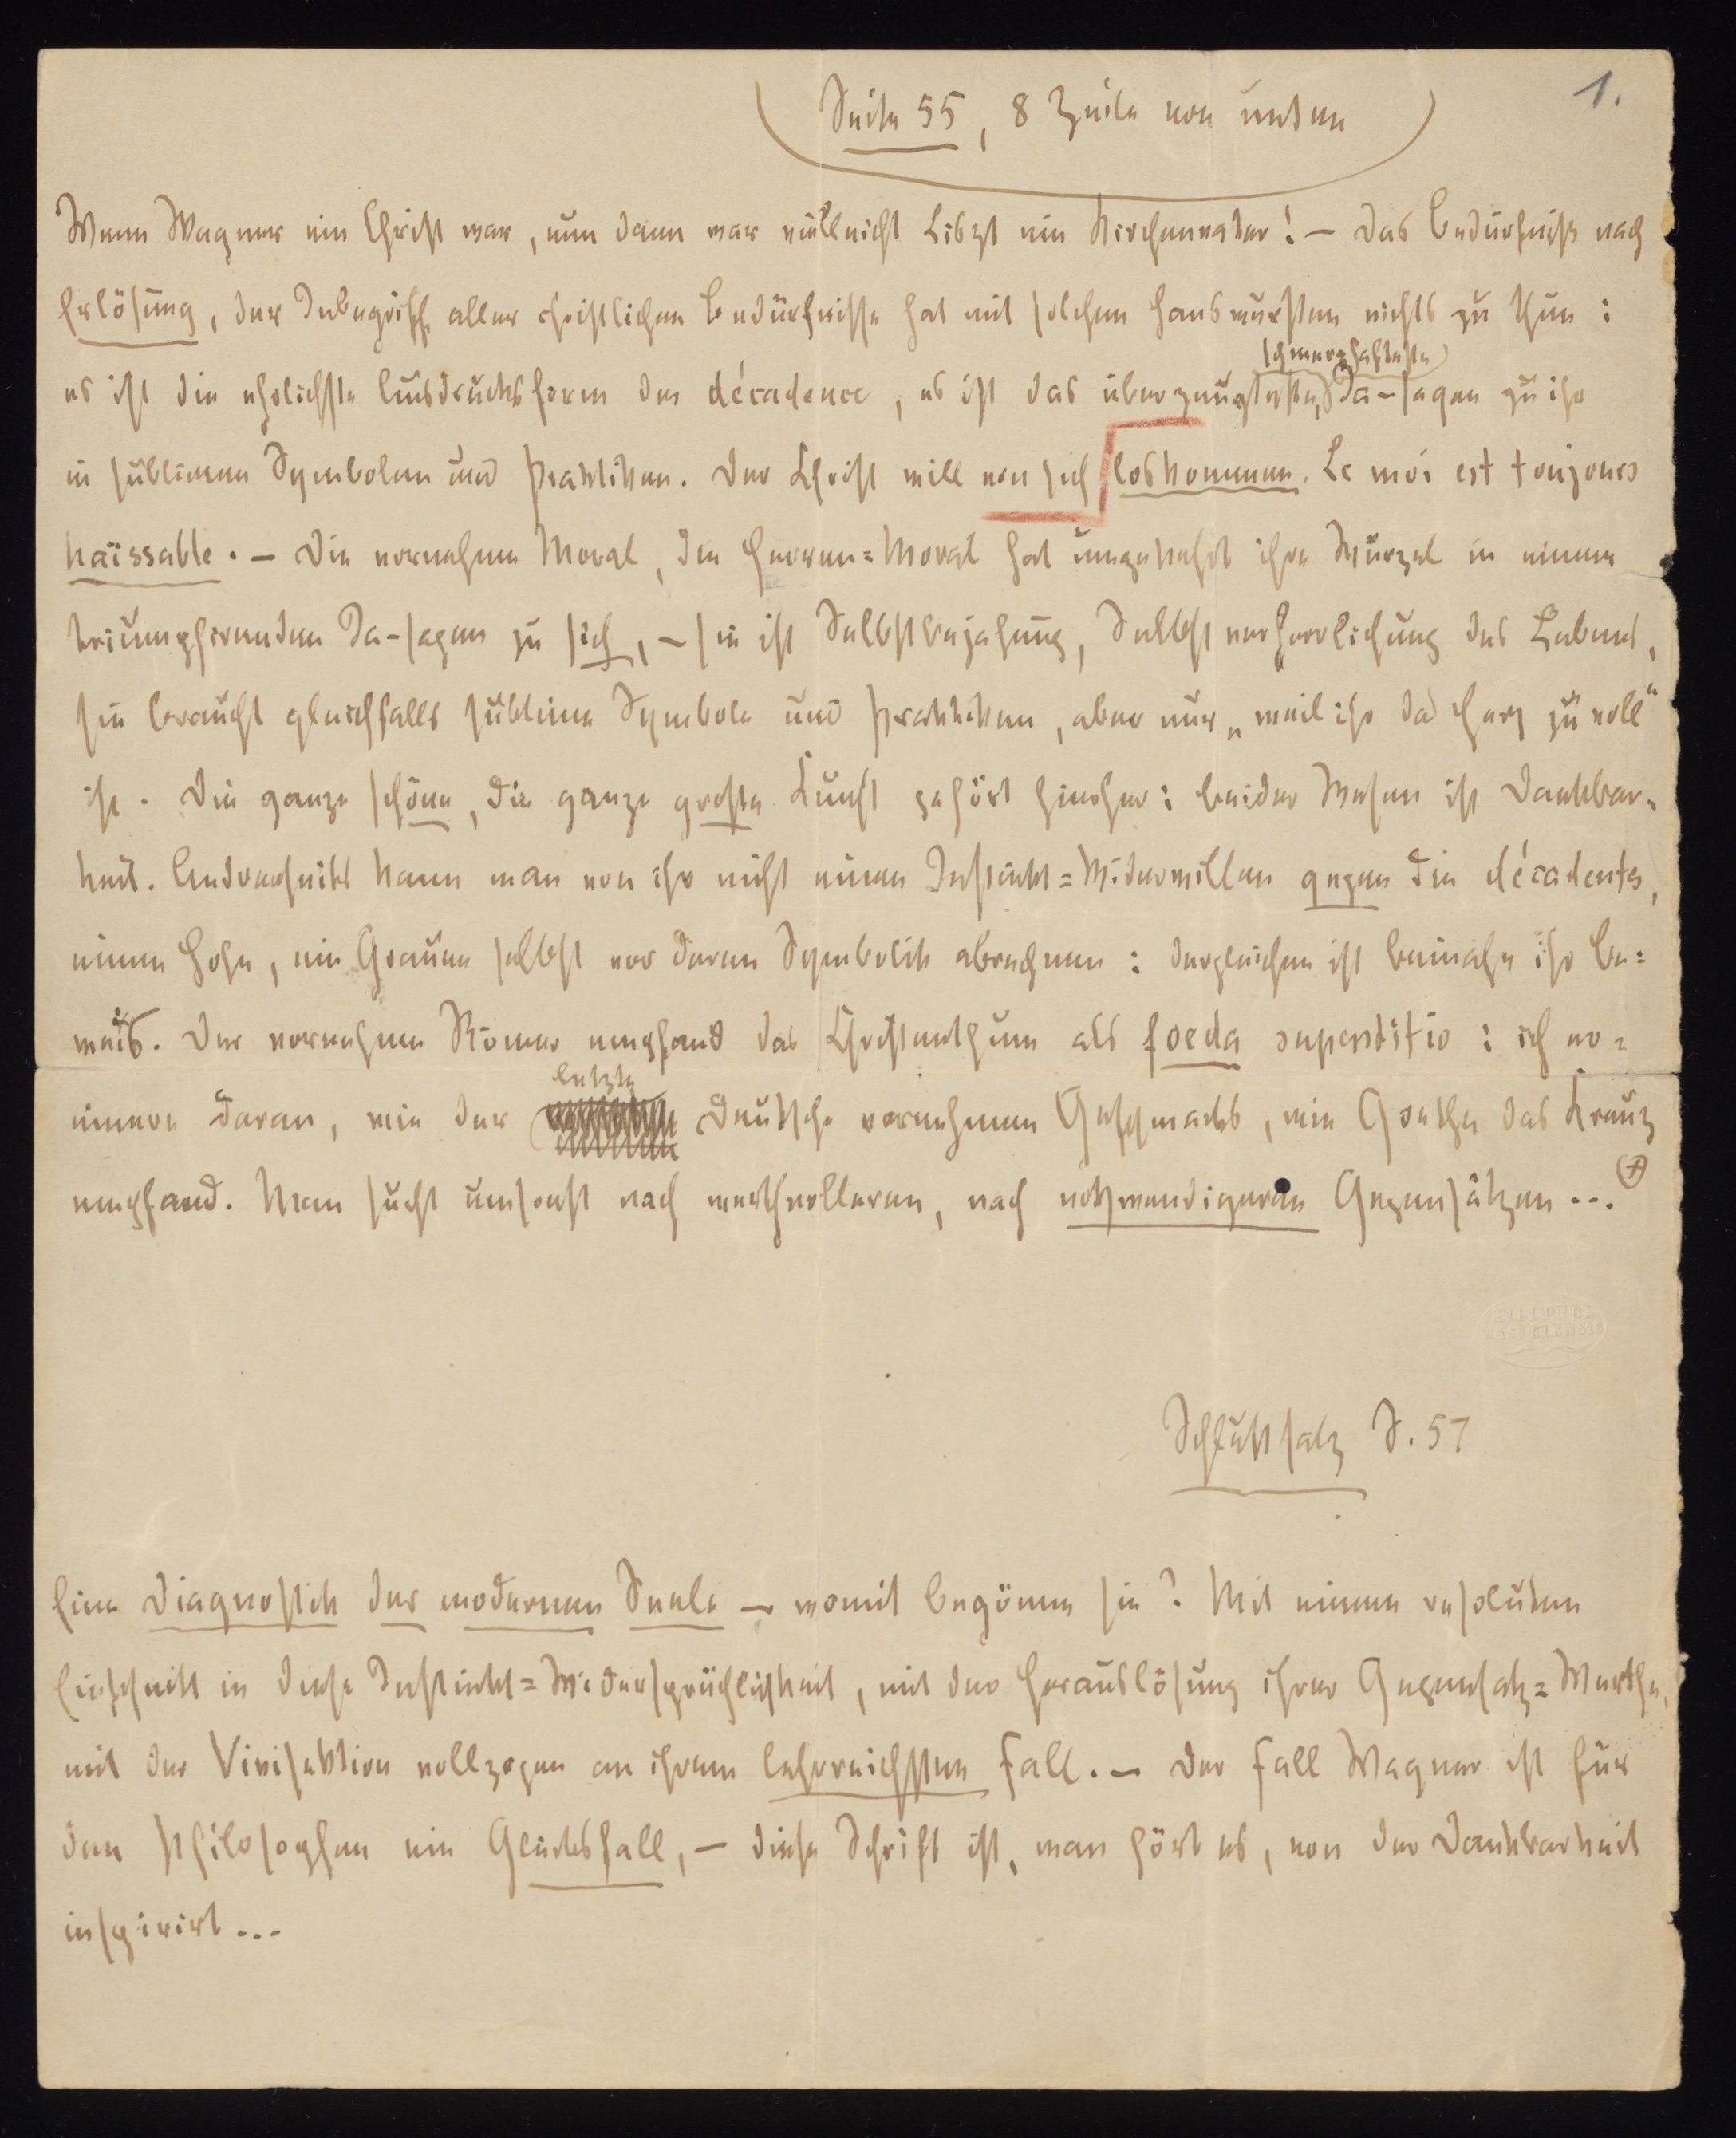 1.
Seite 55, 8 Zeile von unten
Wenn Wagner ein Christ war, nun dann war vielleicht Liszt ein Kirchenvater! – Das Bedürfniß nach
Erlösung, der Inbegriff aller christlichen Bedürfnisse hat mit solchen Hanswursten nichts zu thun:
schmerzhafteste
es ist die ehrlichste Ausdrucksform der décadence, es ist das überzeugteste, Ja-sagen zu ihr
in sublimen Symbolen und Praktiken. Der Christ will von sich loskommen. Le moi est toujours
haïssable. – Die vornehme Moral, die Herren=Moral hat umgekehrt ihre Wurzel in einem
triumphirenden Ja-sagen zu sich, – sie ist Selbstbejahung, Selbstverherrlichung des Lebens,
sie braucht gleichfalls sublime Symbole und Praktiken, aber nur „weil ihr das Herz zu voll“
ist. Die ganze schöne, die ganze große Kunst gehört hierher: beider Wesen ist Dankbar=
keit. Andrerseits kann man von ihr nicht einen Instinkt=Widerwillen gegen die décadents,
einen Hohn, ein Grauen selbst vor deren Symbolik abrechnen: dergleichen ist beinahe ihr Be=
weis. Der vornehme Römer empfand das Christenthum als foeda superstitio: ich er=
letzte
innere daran, wie der Deutsche vornehmen Geschmacks, wie Goethe das Kreuz
empfand. Man sucht umsonst nach werthvolleren, nach nothwendigeren Gegensätzen ... (+)
Schlußsatz S. 57
Eine Diagnostik der modernen Seele – womit begönne sie? Mit einem resoluten
Einschnitt in diese Instinkt=Widersprüchlichkeit, mit der Herauslösung ihrer Gegensatz=Werthe,
mit der Vivisektion vollzogen an ihrem lehrreichsten Fall. – Der Fall Wagner ist für
den Philosophen ein Glücksfall, – diese Schrift ist, man hört es, von der Dankbarkeit
inspirirt ...